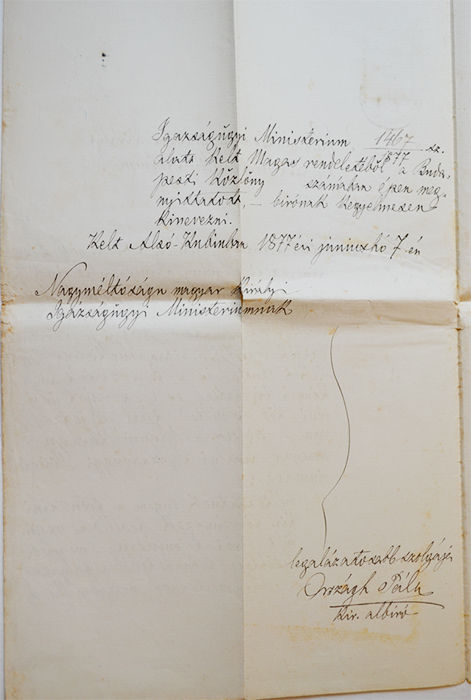 Igazságügyi Ministerium 1467/877 sz.
alatt kelt Magas rendeletéből a Buda-
pesti Közlöny számában épen meg-
nyittatott, – birónak kegyelmesen
kinevezni.
Kelt Alsó-Kubinban 1877 évi június hó 7-én
Nagyméltóságu magyar királyi
Igazságügyi Ministeriumnak
legalázatosabb szolgája
Országh Pál
kir. albiró